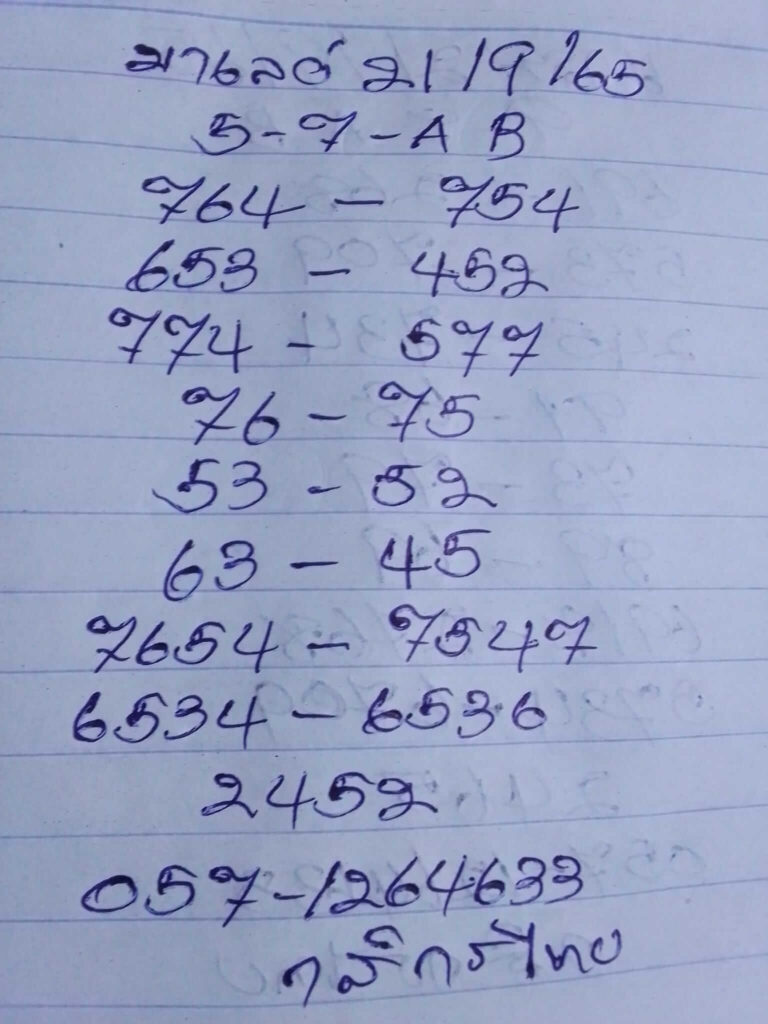 มาเลย์ 21/9/65
5-7-A B
764 - 754
653 - 452
774 - 577
76 - 75
53 - 52
63 - 45
7654 - 7547
6534 - 6536
2452
057-1264633
กสิกรไทย